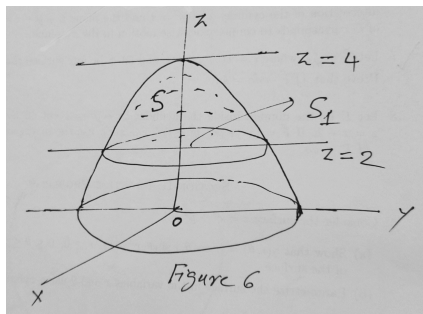 Z
Z = 4
S
S1
Z = 2
O
Y
X
Figure 6